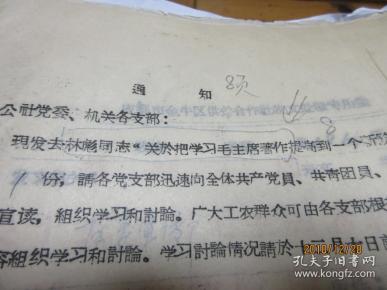 通 知
公社党委、机关各支部：
8
现发去林彪同志“关於把学习毛主席著作提高到一个
份，請各党支部迅速向全体共产党員、共青团員、
宣读，組织学习和討論。广大工农群众可由各支部根
容組织学习和討論。学习討論情况請於十
2010/12/20
孔夫子旧书网